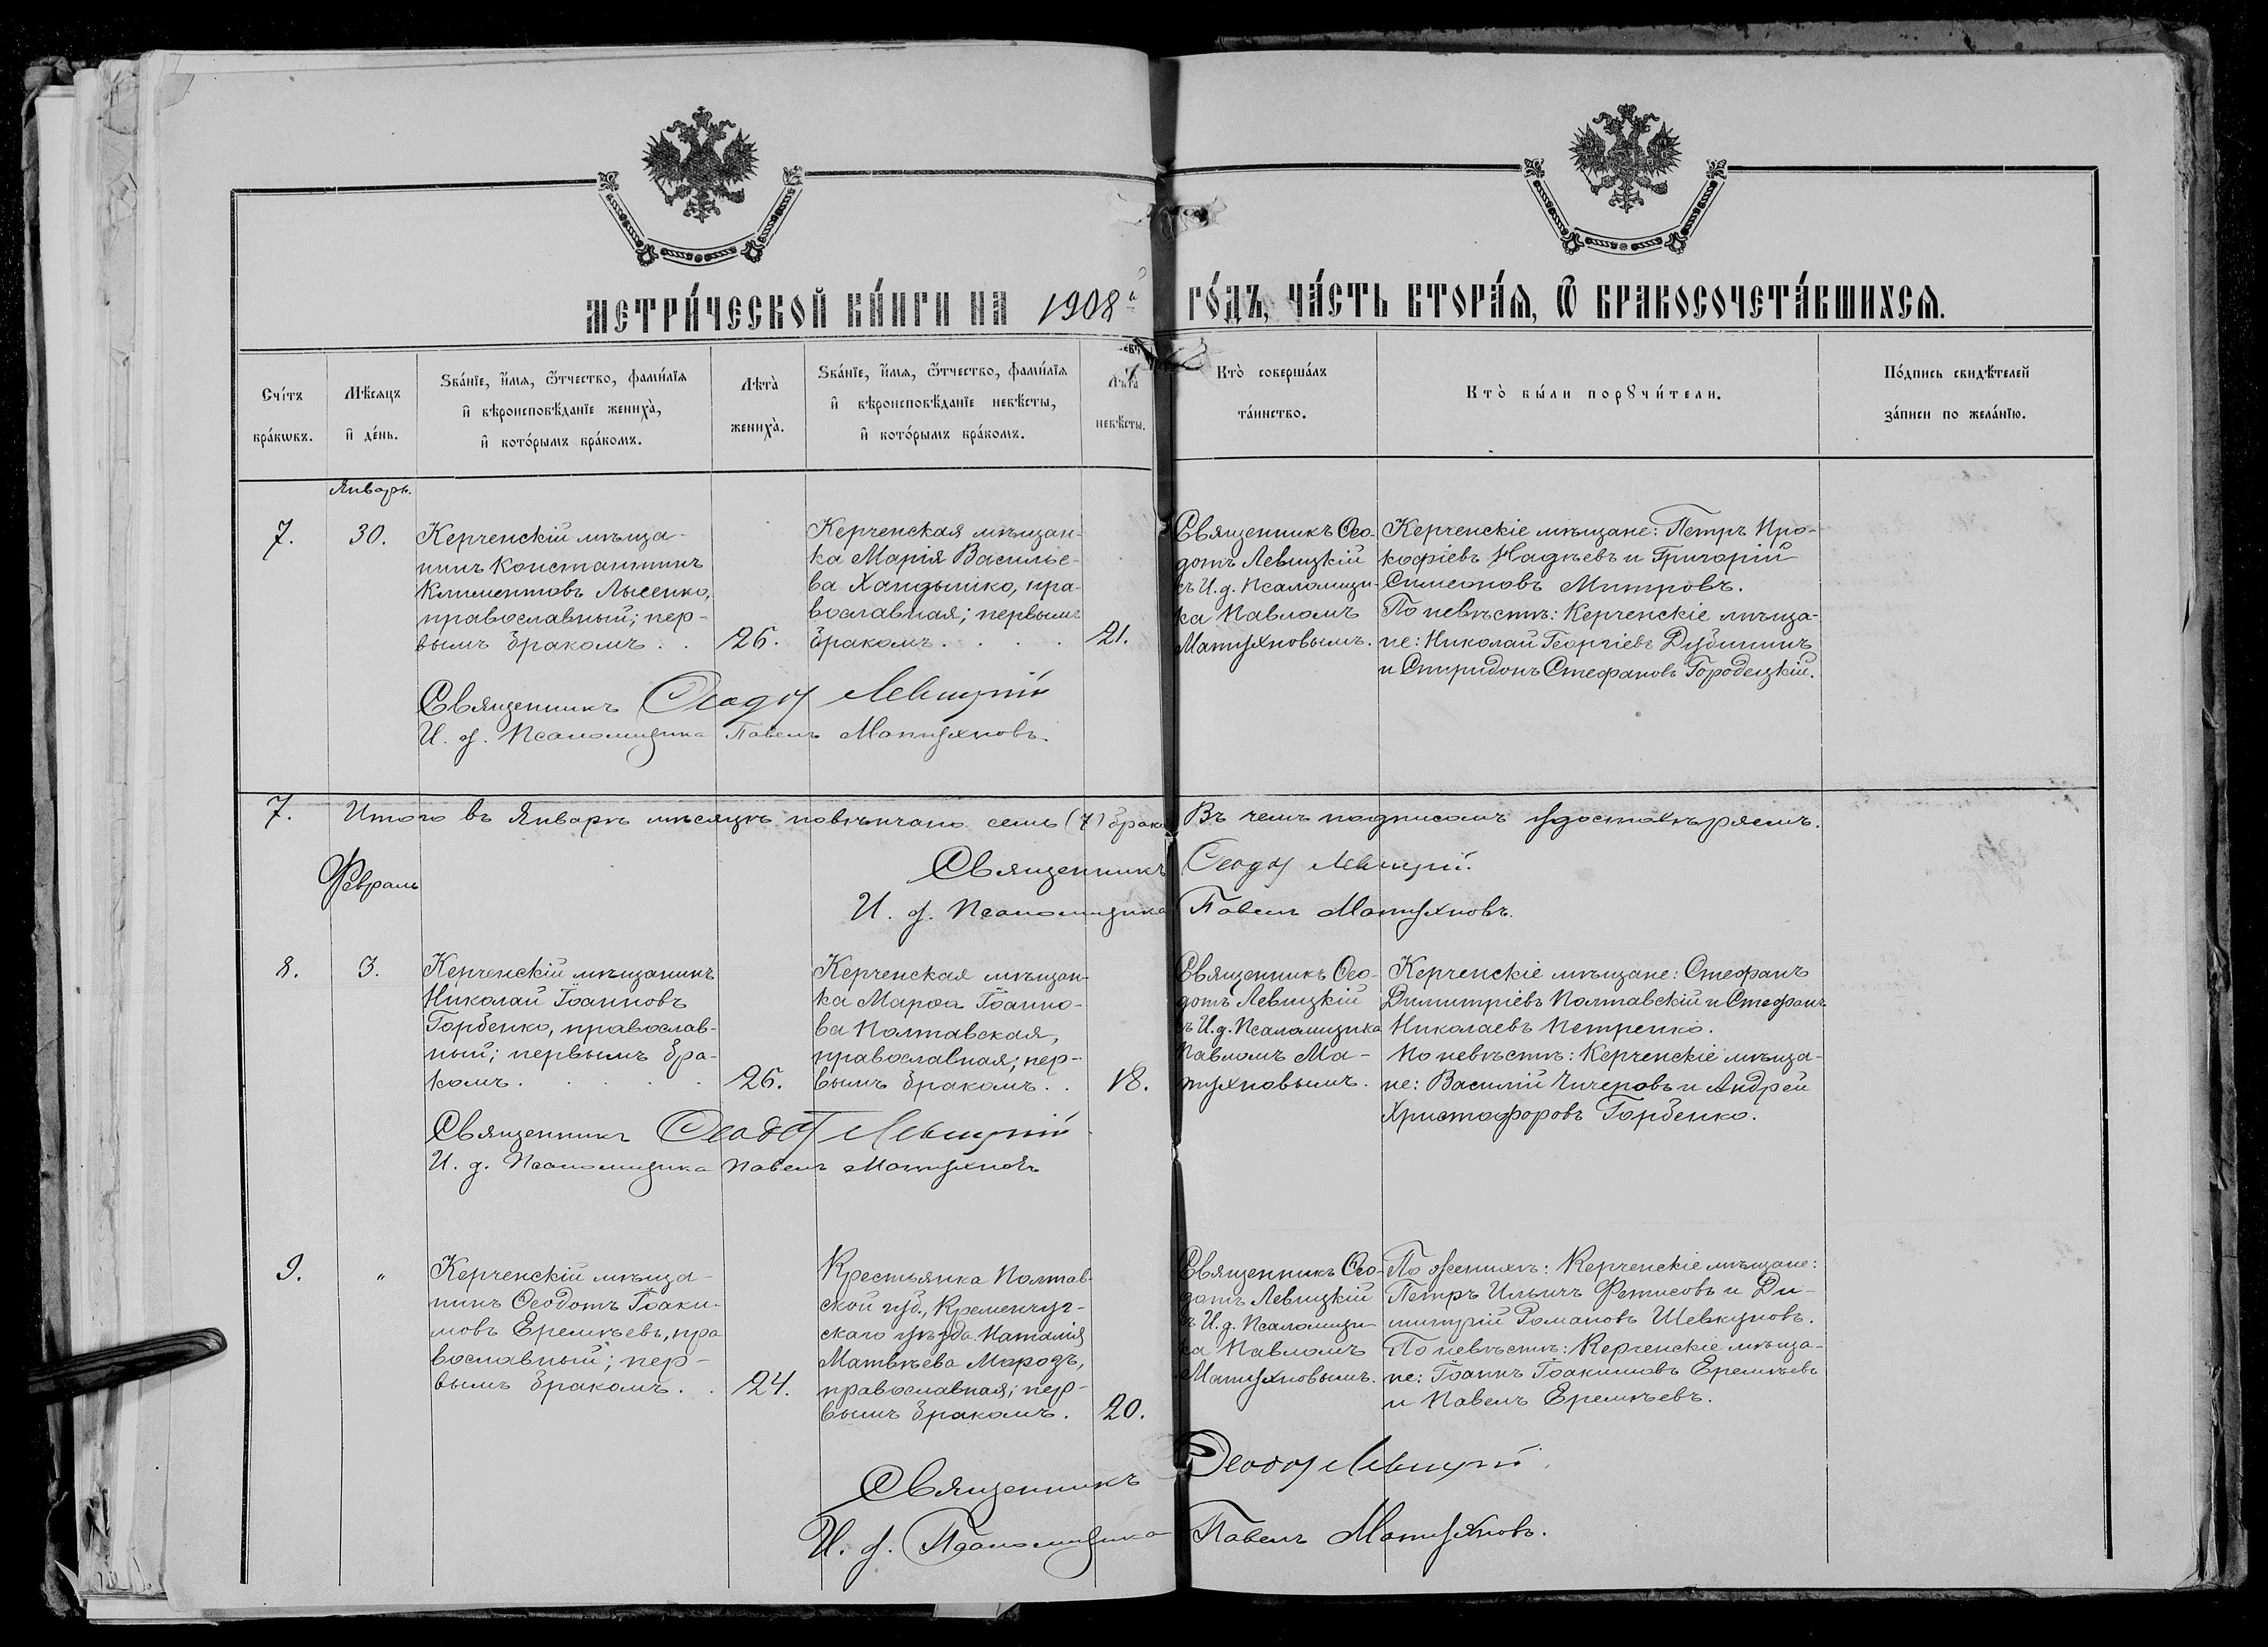 МЕТРИ́ЧЕСКОЙ КНИ́ГИ НА 1908й ГО́ДЪ, ЧА́СТЬ ВТОРА́Ѧ, Ѿ БРАКОСОЧЕТА́ВШИХСѦ.
Сче́тъ
бра́кѡвъ.
Мѣ́сѧцъ
и҆ де́нь.
Ѕва́нїе, и҆́мѧ, ѻ҆́тчество, фами́лїѧ
и҆ вѣроисповѣ́данїе жениха̀,
и҆ кото́рымъ бра́комъ.
Лѣта̀
жениха̀.
Ѕва́нїе, и҆́мѧ, ѻ҆́тчество, фами́лїѧ
и҆ вѣроисповѣ́данїе невѣ́сты,
и҆ кото́рымъ бра́комъ.
Лѣта̀
невѣ́сты.
Кто̀ соверша́лъ
та́инство.
Кто̀ бы́ли порꙋчи́тели.
По́дпись свидѣ́телей
за́писи по жела́нїю.
Январь.
7.
30.
Керченскій мѣща-
нинъ Константинъ
Климентовъ Лысенко,
православный; пер-
вымъ бракомъ . .
26.
Керченская мѣщан-
ка Марія Василье-
ва Хандышко, пра-
вославная; первымъ
бракомъ . . . .
21.
Священникъ Ѳео-
дотъ Левицкій
съ И. д. Псаломщи-
ка Павломъ
Матухновымъ.
Керченскіе мѣщане: Петръ Про-
кофіевъ Надѣевъ и Григорій
Симеоновъ Митровъ.
По невѣстѣ: Керченскіе мѣща-
не: Николай Георгіевъ Дубининъ
и Спиридонъ Стефановъ Городецкій.
Священникъ Ѳеодотъ Левицкій
И. д. Псаломщика Павелъ Матухновъ.
7. Итого въ Январѣ мѣсяцѣ повѣнчано семь (7) брак Въ чемъ подписомъ удостовѣряемъ.
Священникъ Ѳеодотъ Левицкій.
Февраль
И. д. Псаломщика Павелъ Матухновъ.
8.
3.
Керченскій мѣщанинъ
Николай Іоанновъ
Горбенко, православ-
ный; первымъ бра-
комъ . . . . .
26.
Керченская мѣщан-
ка Марѳа Іоанно-
ва Полтавская,
православная; пер-
вымъ бракомъ . .
18.
Священникъ Ѳео-
дотъ Левицкій
съ И. д. Псаломщика
Павломъ Ма-
тухновымъ.
Керченскіе мѣщане: Стефанъ
Димитріевъ Полтавскій и Стефанъ
Николаевъ Петренко.
По невѣстѣ: Керченскіе мѣща-
не: Василій Чичеровъ и Андрей
Христофоровъ Горбенко.
Священникъ Ѳеодотъ Левицкій
И. д. Псаломщика Павелъ Матухновъ
9.
"
Керченскій мѣща-
нинъ Ѳеодотъ Іоаки-
мовъ Еремѣевъ, пра-
вославный; пер-
вымъ бракомъ . .
24.
Крестьянка Полтав-
ской губ., Кременчуг-
скаго уѣзда Наталія
Матвѣева Морозъ,
православная; пер-
вымъ бракомъ .
20.
Священникъ Ѳео-
дотъ Левицкій
съ И. д. Псаломщи-
ка Павломъ
Матухновымъ.
По женихѣ: Керченскіе мѣщане:
Петръ Ильичъ Фетисовъ и Ди-
митрій Романовъ Шевкуновъ.
По невѣстѣ: Керченскіе мѣща-
не: Іоаннъ Іоакимовъ Еремѣевъ
и Павелъ Еремѣевъ.
Священникъ Ѳеодотъ Левицкій.
И. д. Псаломщика Павелъ Матухновъ.